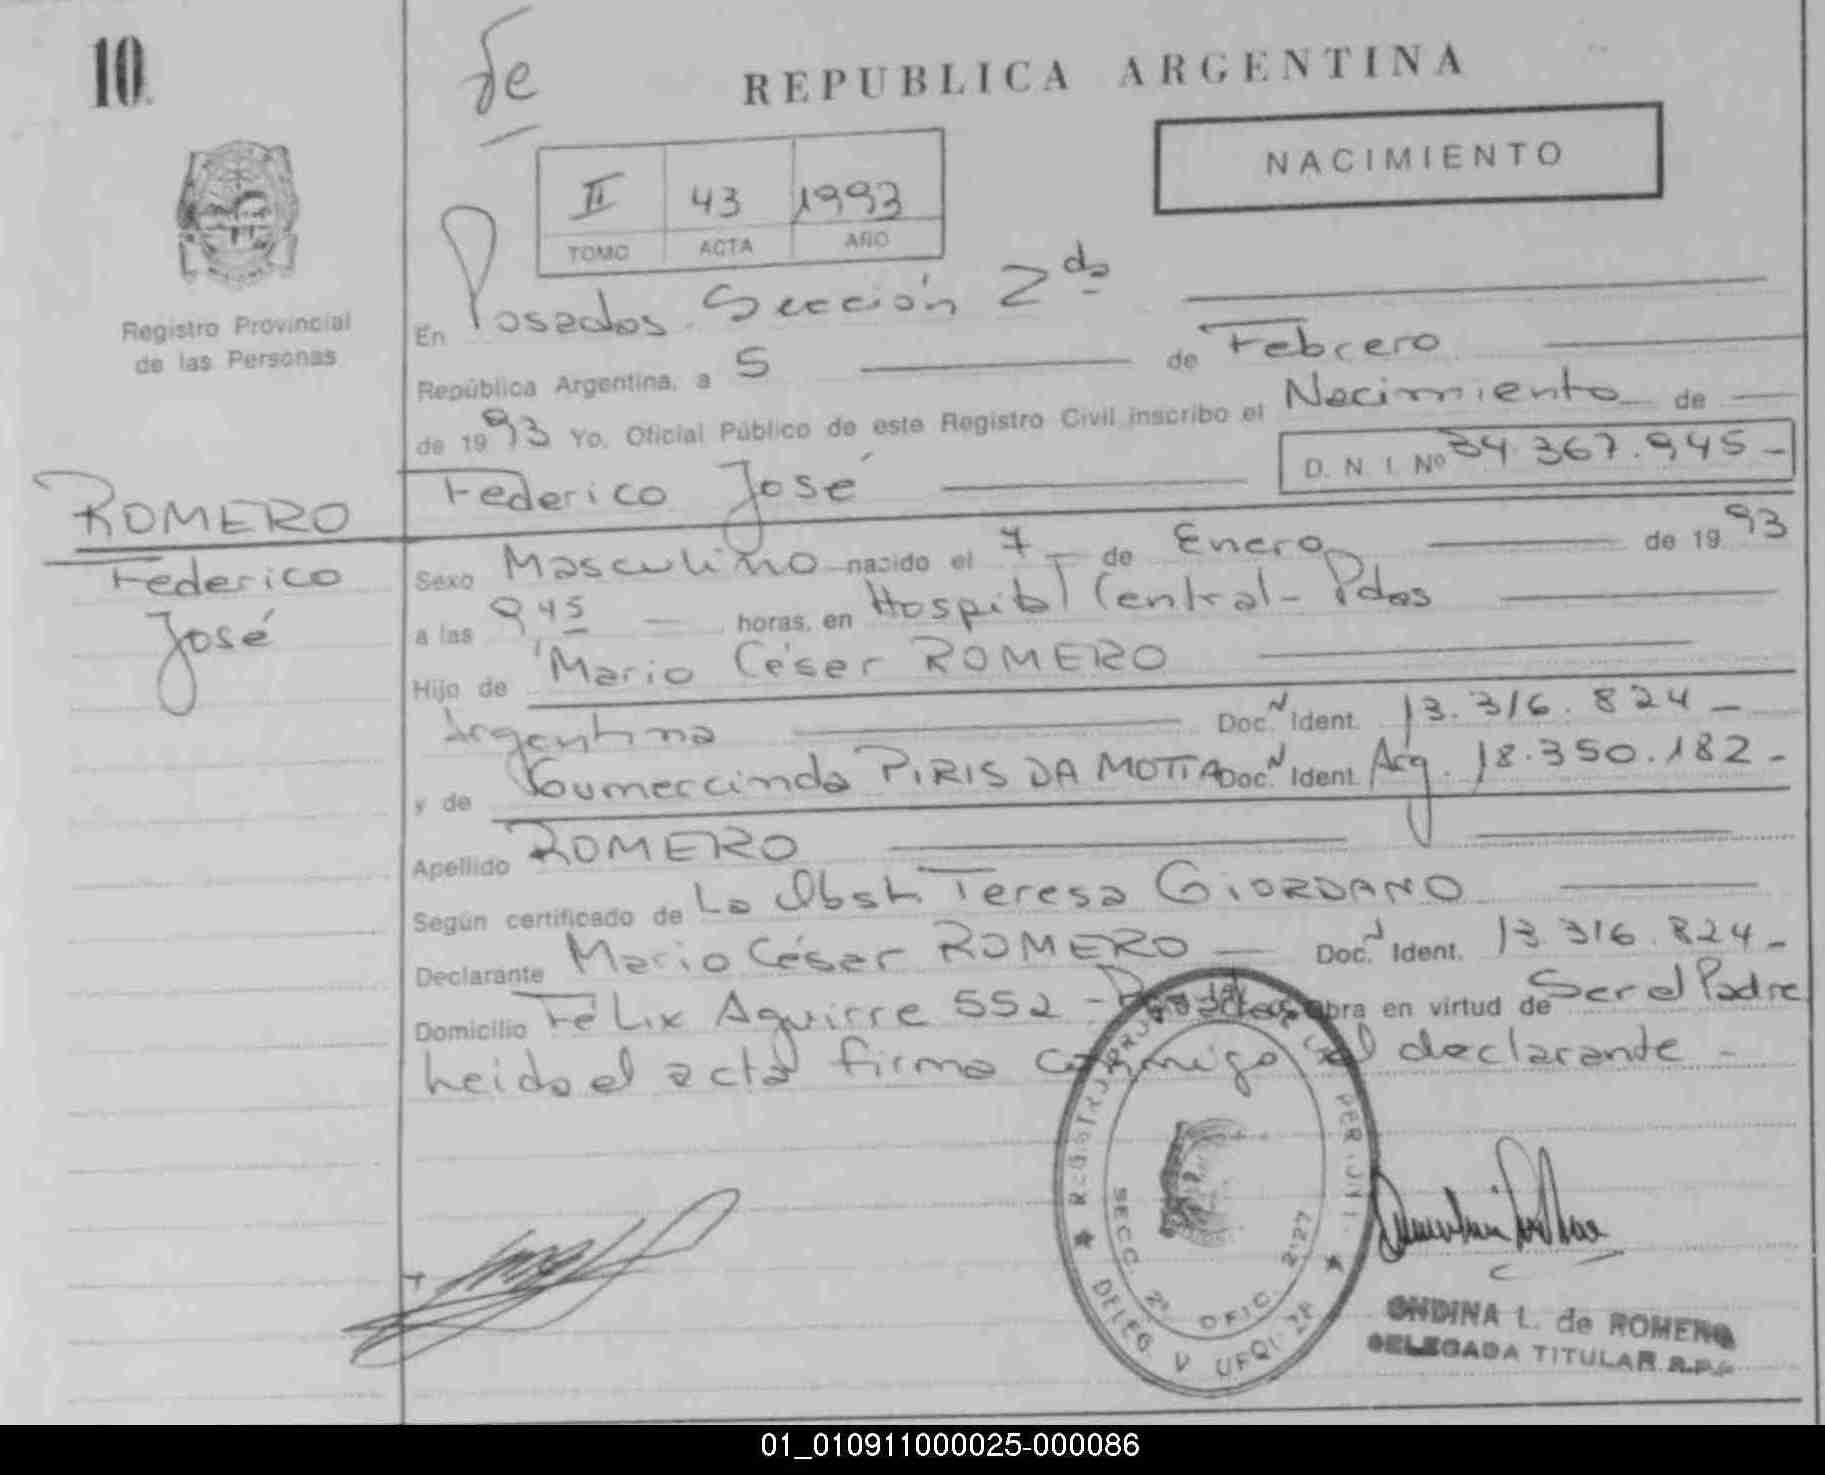 10
de
REPUBLICA ARGENTINA
NACIMIENTO
II 43 1993
TOMO ACTA AÑO
Registro Provincial
de las Personas
En Posadas Sección 2da
República Argentina, a 5 de Febrero
de 1993 Yo, Oficial Público de este Registro Civil inscribo el Nacimiento de
ROMERO
Federico
José
Federico José D. N. I. Nº 34.367.945-
Sexo Masculino nacido el 7 de Enero de 1993
a las 9 45 horas, en Hospital Central - Pdas
Hijo de Mario César ROMERO
Argentina Doc. N Ident. 13.316.824-
y de Goumercinda PIRIS DA MOTTA Doc. N Ident. Arg. 18.350.182-
Apellido ROMERO
Según certificado de La Obst. Teresa GIORDANO
Declarante Mario César ROMERO Doc. Ident. 13.316.824-
Domicilio Félix Aguirre 552 - Posadas Obra en virtud de Ser el Padre
Leida el acta firma conmigo el declarante -
SECC. 2ª OFIC. 2127
DELEG.
ONDINA L. de ROMERO
DELEGADA TITULAR R.P.P.
01_010911000025-000086